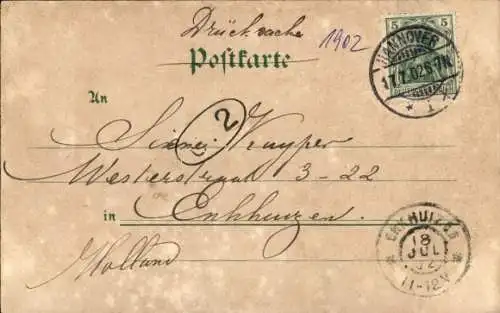 Drucksache
1902
Postkarte
5 5
HANNOVER
17.7.02.6-7N.
* 1
An
2
Kuyper
Westerstraat 3-22
in Enkhuizen.
Holland
ENKHUIZEN
18
JUL
02
11-12V